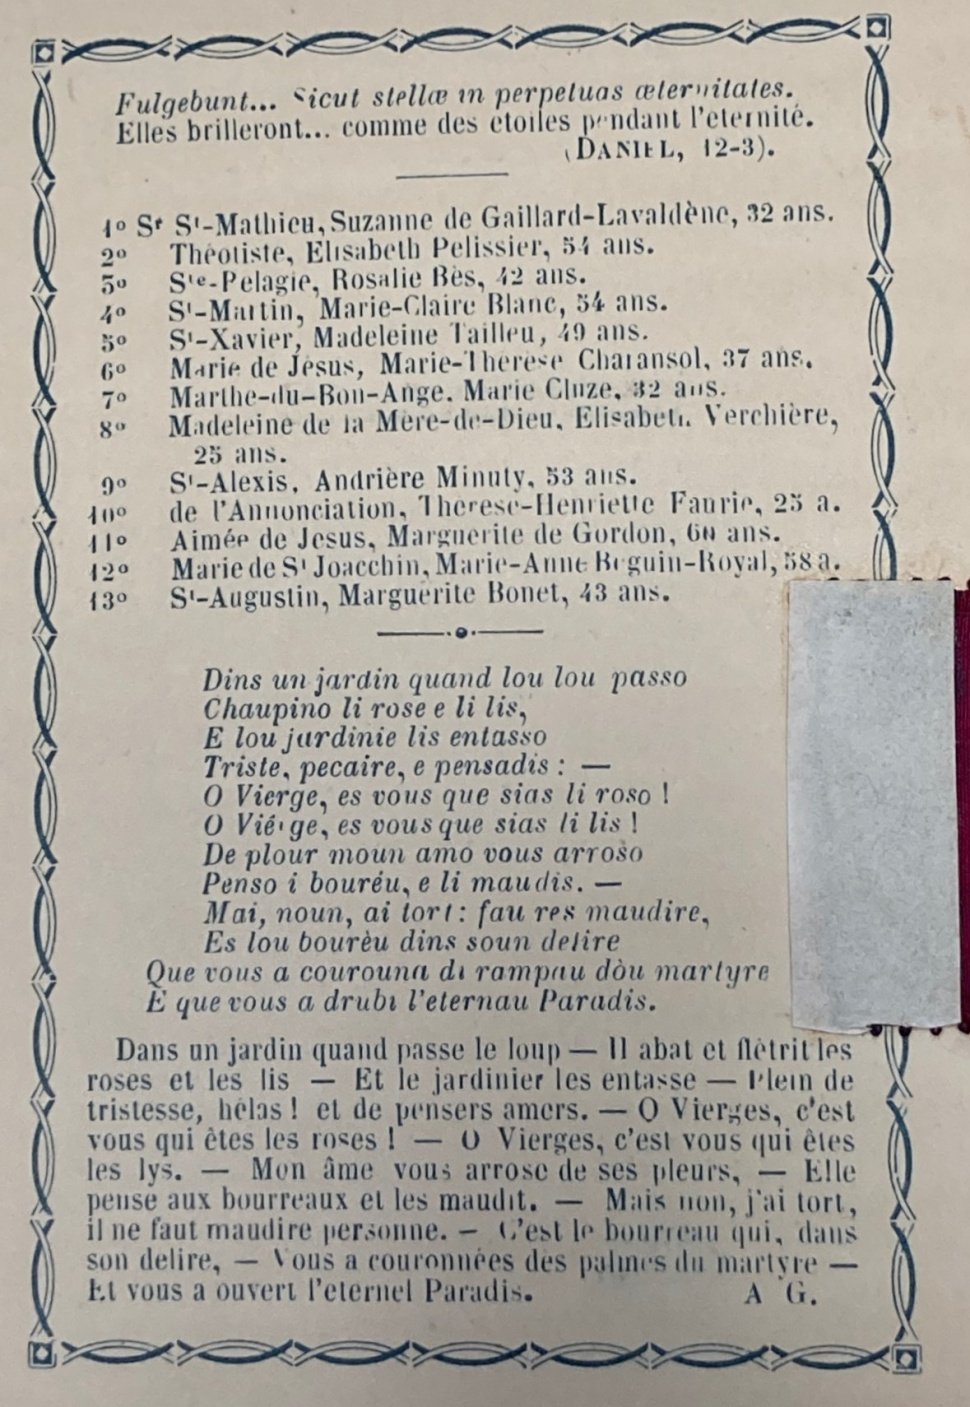 Fulgebunt... Sicut stellæ in perpetuas æternitates.
Elles brilleront... comme des etoiles pendant l'eternité.
(DANIEL, 12-3).
1º Sr St-Mathieu, Suzanne de Gaillard-Lavaldène, 32 ans.
2º Théotiste, Elisabeth Pelissier, 54 ans.
3º Ste-Pelagie, Rosalie Bès, 42 ans.
4º St-Martin, Marie-Claire Blanc, 54 ans.
5º St-Xavier, Madeleine Tailleu, 49 ans.
6º Marie de Jésus, Marie-Therese Charansol, 37 ans.
7º Marthe-du-Bon-Ange. Marie Cluze, 32 ans.
8º Madeleine de la Mère-de-Dieu, Elisabeth Verchière,
25 ans.
9º St-Alexis, Andrière Minuty, 53 ans.
10º de l'Annonciation, Therese-Henriette Faurie, 25 a.
11º Aimée de Jesus, Marguerite de Gordon, 60 ans.
12º Marie de St Joacchin, Marie-Anne Beguin-Royal, 58 a.
13º St-Augustin, Marguérite Bonet, 43 ans.
Dins un jardin quand lou lou passo
Chaupino li rose e li lis,
E lou jardinie lis entasso
Triste, pecaire, e pensadis : —
O Vierge, es vous que sias li roso !
O Viérge, es vous que sias li lis !
De plour moun amo vous arroso
Penso i bouréu, e li maudis. —
Mai, noun, ai tort : fau res maudire,
Es lou bourèu dins soun delire
Que vous a courouna di rampau dòu martyre
E que vous a drubi l'eternau Paradis.
Dans un jardin quand passe le loup — Il abat et flétrit les
roses et les lis — Et le jardinier les entasse — Plein de
tristesse, hélas ! et de pensers amers. — O Vierges, c'est
vous qui êtes les roses ! — O Vierges, c'est vous qui êtes
les lys. — Mon âme vous arrose de ses pleurs, — Elle
pense aux bourreaux et les maudit. — Mais non, j'ai tort,
il ne faut maudire personne. — C'est le bourreau qui, dans
son delire, — Vous a couronnées des palmes du martyre —
Et vous a ouvert l'eternel Paradis. A G.